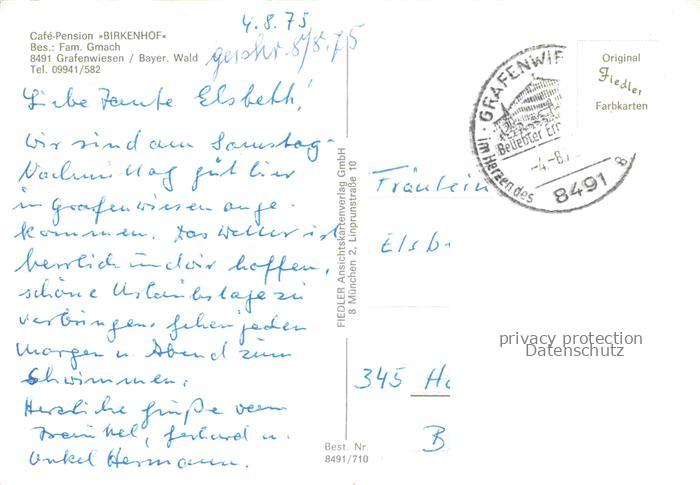 4.8.75
Café-Pension »BIRKENHOF«
Bes.: Fam. Gmach
8491 Grafenwiesen / Bayer. Wald
Tel. 09941/582
geschr. 8/8.75
Liebe Tante Elsbeth!
Wir sind am Samstag-
Nachmittag gut hier
in Grafenwiesen ange-
kommen. Das Wetter ist
herrlich und wir hoffen,
schöne Urlaubstage zu
verbringen. Gehen jeden
Morgen u. Abend zum
Schwimmen.
Herzliche Grüße
Gerhard u.
Onkel Hermann.
FIEDLER Ansichtskartenverlag GmbH
8 München 2, Linprunstraße 10
Best. Nr.
8491/710
GRAFENWIE
Beliebter Er
im Herzen des
-4.-8.7
8491
8
Original
Fiedler
Farbkarten
Fräulein
Elsb
345 Ho
B
privacy protection
Datenschutz